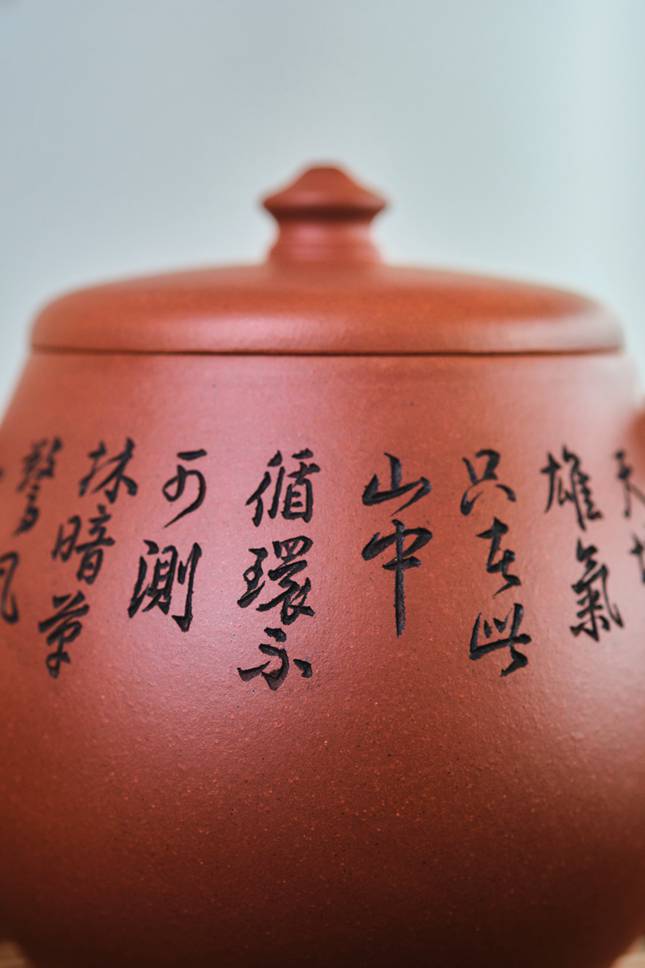 天
雄氣
只在此
山中
循環不
可測
林暗草
驚